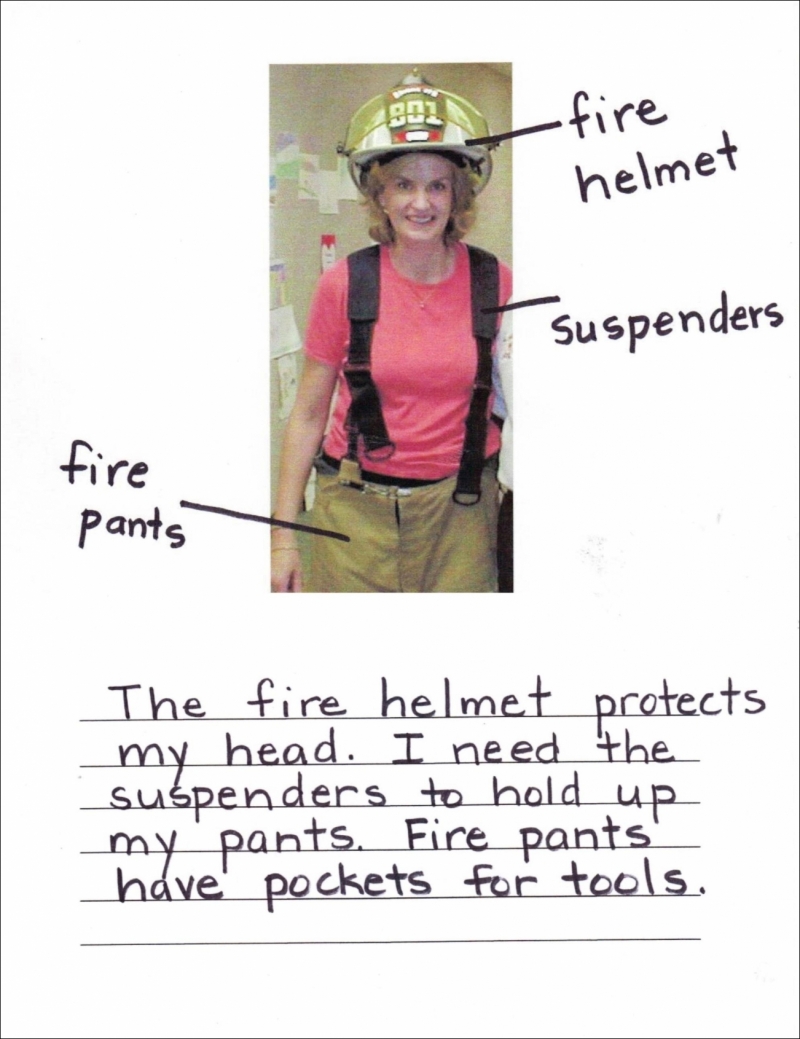 801
fire
helmet
suspenders
fire
pants
The fire helmet protects
my head. I need the
suspenders to hold up
my pants. Fire pants
have pockets for tools.